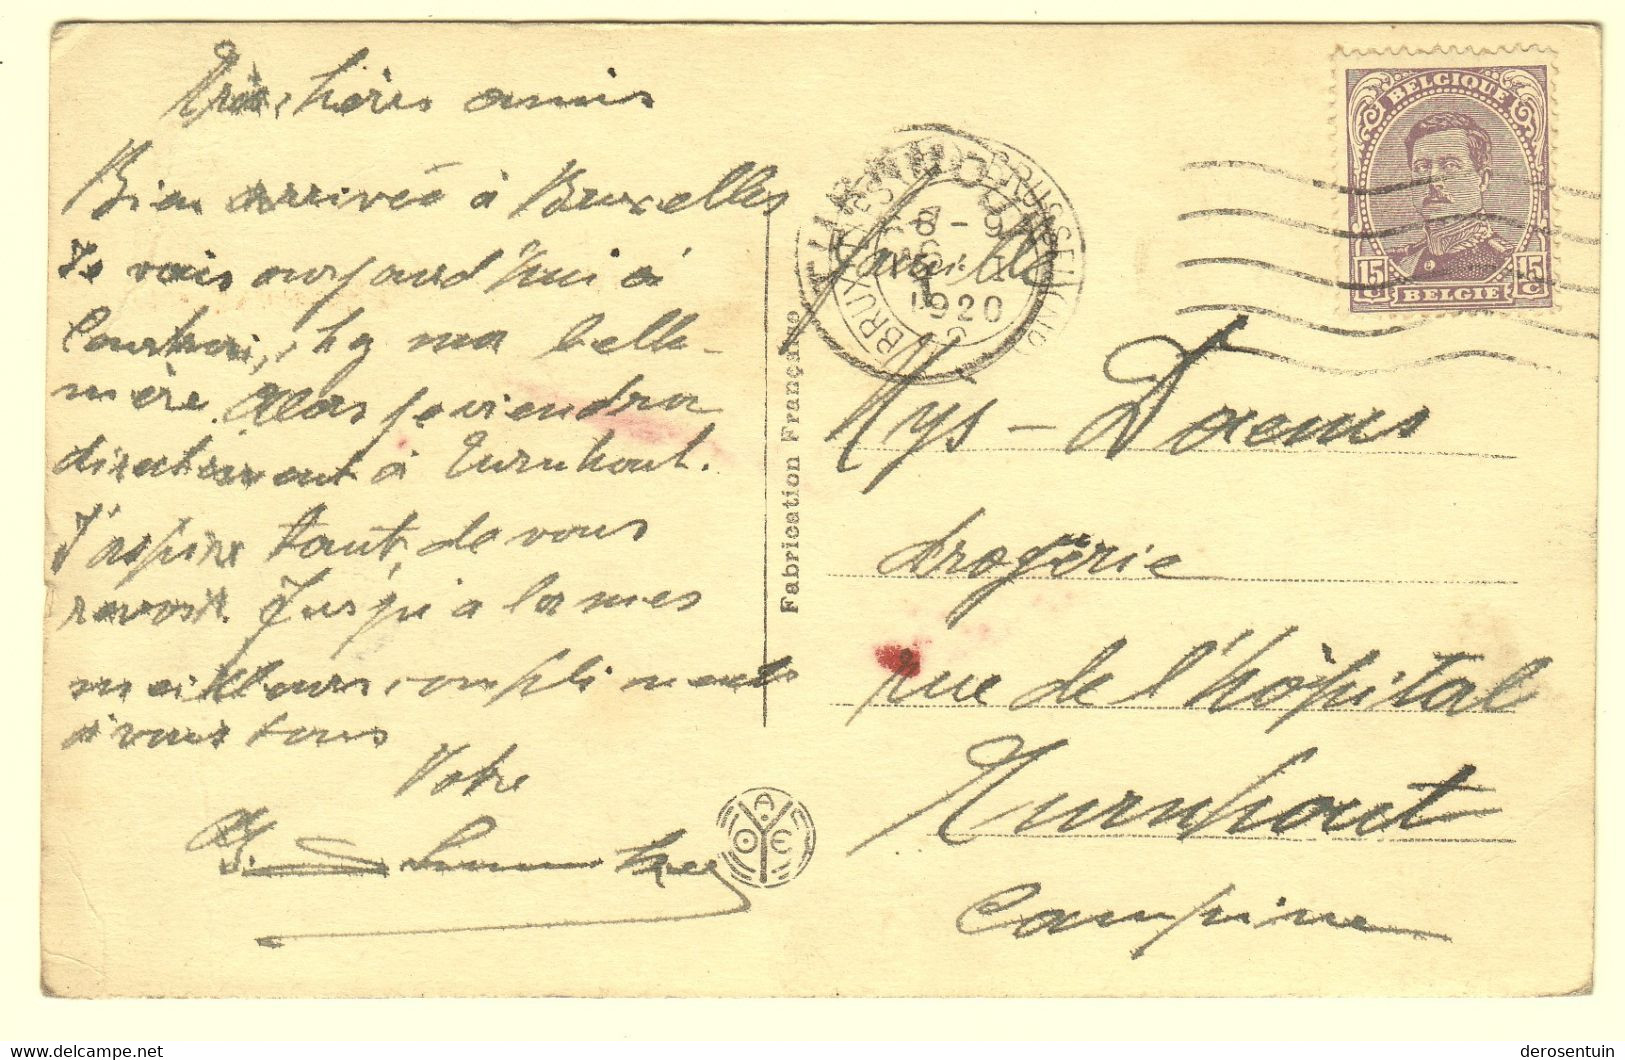 Très chères amis
Bien arrivée à Bruxelles
Je vais aurjourd'hui à
Courtrai, chez ma belle-
mère. Alors je viendra
directement à Turnhout.
J'aspire tant de vous
revoir. Jusqu'a la mes
meilleurs compliments
à vous tous
Votre
Fabrication Française
BRUXELLES
BRUSSEL
8-9
1920
BELGIQUE
15 C
15 C
BELGIE
Famille
Nys - Daems
drogërie
rue de l'hôpital
Turnhout
Campine
www.delcampe.net
derosentuin